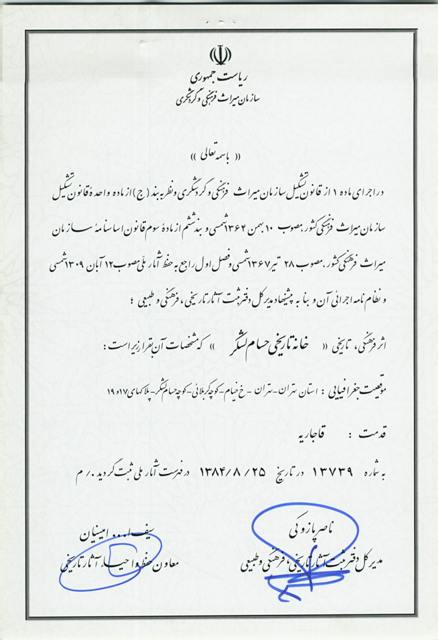 ریاست جمهوری
سازمان میراث فرهنگی و گردشگری
« باسمه تعالی »
در اجرای ماده ۱ از قانون تشکیل سازمان میراث فرهنگی و گردشگری و نظر به بند ( ج ) از ماده واحدهٔ قانون تشکیل
سازمان میراث فرهنگی کشور مصوب ۱۰ بهمن ۱۳۶۴ شمسی و بند ششم از مادهٔ سوم قانون اساسنامهٔ سازمان
میراث فرهنگی کشور مصوب ۲۸ تیر ۱۳۶۷ شمسی و فصل اول راجع به حفظ آثار ملی مصوب ۱۲ آبان ۱۳۰۹ شمسی
و نظام نامه اجرائی آن و بنا به پیشنهاد مدیر کل دفتر ثبت آثار تاریخی ، فرهنگی و طبیعی ؛
اثر فرهنگی ، تاریخی « خانه تاریخی حسام لشگر » که مشخصات آن بقرار زیر است :
موقعیت جغرافیایی : استان تهران - تهران - خ خیام - کوچه کربلائی - کوچه حسام لشگر - پلاکهای ۱۷ و ۱۹
قدمت : قاجاریه
به شماره ۱۳۷۳۹ در تاریخ ۱۳۸۴/۸/۲۵ در فهرست آثار ملی ثبت گردید ./ م
ناصر پازوکی
مدیر کل دفتر ثبت آثار تاریخی ، فرهنگی و طبیعی
سیف ا... امینیان
معاون حفظ و احیاء آثار تاریخی